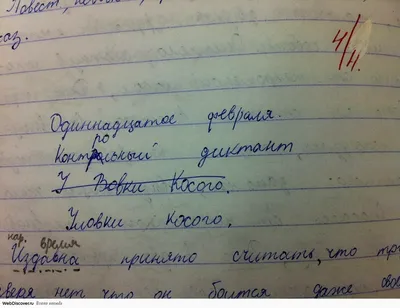 Повест,
каз.
4/4.
Одиннадцатое февраля.
ро
Контрольный диктант
У Вовки Косого.
Уловки косого.
нар. время
Издавна принято считать, что
зверя нет что он боится даже
WebDiscover.ru